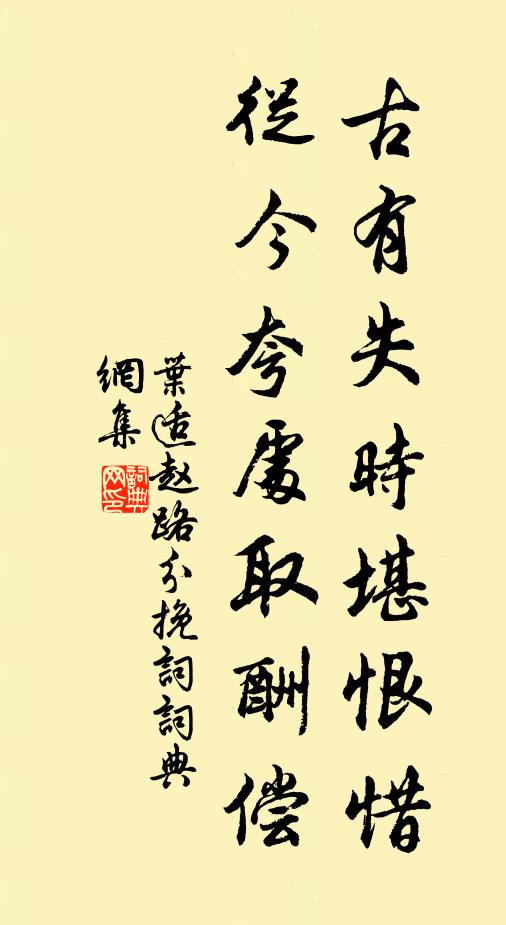 古有失時堪恨惜
從今夸處取酬偿
葉适赵路分挽詞詞典
網集
詞典网印